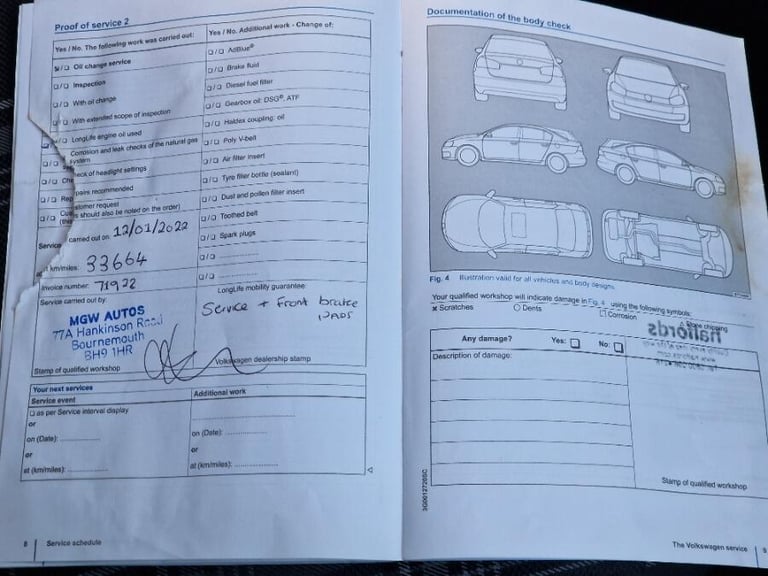 Proof of service 2
Yes / No. The following work was carried out:
❏/❏ Oil change service
❏/❏ Inspection
❏/❏ With oil change
❏/❏ With extended scope of inspection
LongLife engine oil used
Corrosion and leak checks of the natural gas
system
❏/❏ Che eck of headlight settings
❏/❏ Rep pairs recommended
❏/❏ Cus stomer request
(thes s should also be noted on the order)
Service carried out on: 12/01/2022
at km/miles: 33664
Invoice number: 71922
Service carried out by:
MGW AUTOS
77A Hankinson Road
Bournemouth
BH9 1HR
Stamp of qualified workshop
Yes / No. Additional work - Change of:
❏/❏ AdBlue®
❏/❏ Brake fluid
❏/❏ Diesel fuel filter
❏/❏ Gearbox oil: DSG®, ATF
❏/❏ Haldex coupling: oil
❏/❏ Poly V-belt
❏/❏ Air filter insert
❏/❏ Tyre filler bottle (sealant)
❏/❏ Dust and pollen filter insert
❏/❏ Toothed belt
❏/❏ Spark plugs
❏/❏
❏/❏
LongLife mobility guarantee:
Service + Front brake
pads
Volkswagen dealership stamp
Your next services
Service event
❏ as per Service interval display
or
on (Date):
or
at (km/miles):
Additional work
on (Date):
or
at (km/miles):
8 Service schedule
Documentation of the body check
Fig. 4 Illustration valid for all vehicles and body designs.
Your qualified workshop will indicate damage in Fig. 4 using the following symbols:
× Scratches
○ Dents
❏ Corrosion
Stone chipping
halfords
Any damage? Yes: ❏ No: ❏
Description of damage:
Stamp of qualified workshop
The Volkswagen service 9